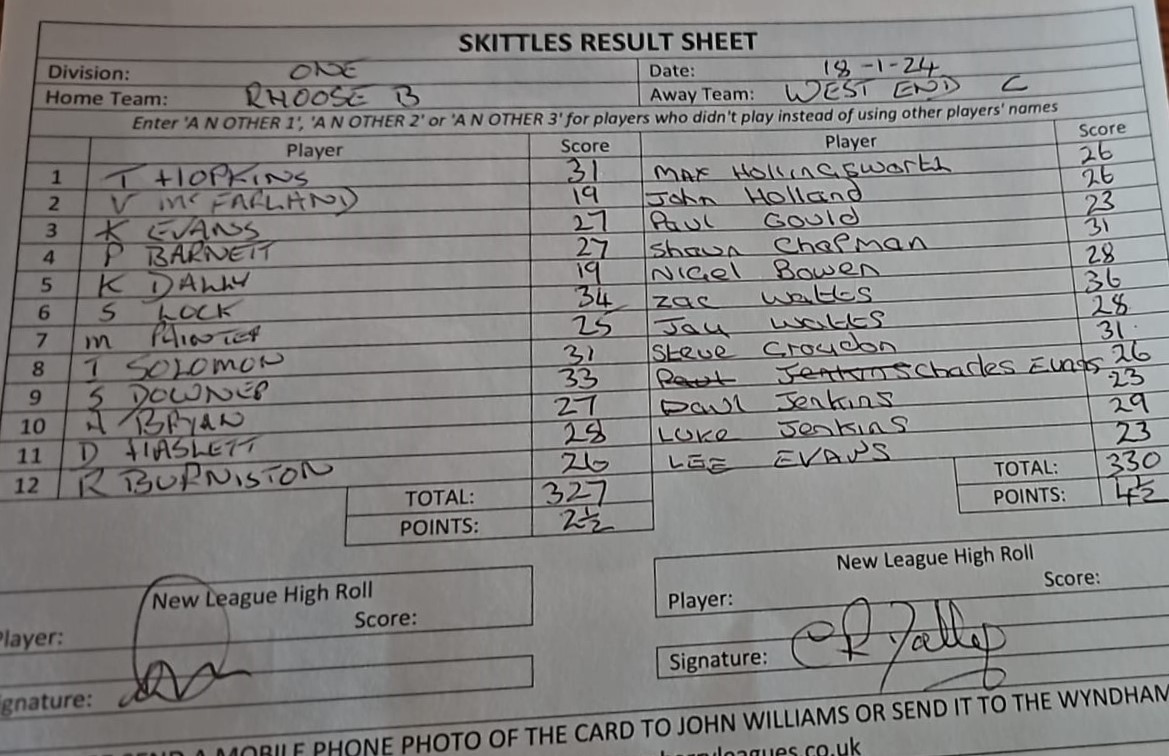 SKITTLES RESULT SHEET
Division: ONE Date: 18-1-24
Home Team: RHOOSE B Away Team: WEST END C
Enter 'A N OTHER 1', 'A N OTHER 2' or 'A N OTHER 3' for players who didn't play instead of using other players' names
Player Score Player Score
1 T HOPKINS 31 MAX Hollingsworth 26
2 V McFARLAND 19 John Holland 26
3 K EVANS 27 Paul Gould 23
4 P BARNETT 27 Shawn Chapman 31
5 K DALLY 19 Nigel Bowen 28
6 S LOCK 34 Zac Watts 36
7 M PAINTER 25 Jay Watts 28
8 T SOLOMON 31 Steve Croydon 31
9 S DOWNER 33 Paul Jenkins Charles 26
10 BRYAN 27 Paul Jenkins 23
11 D HASLETT 28 Luke Jenkins 29
12 R BURNISTON 26 LEE EVANS 23
TOTAL: 327 TOTAL: 330
POINTS: 2½ POINTS: 4½
New League High Roll New League High Roll
Player: Score: Player: Score:
Signature: Signature:
A MOBILE PHONE PHOTO OF THE CARD TO JOHN WILLIAMS OR SEND IT TO THE WYNDHAM
leagues.co.uk